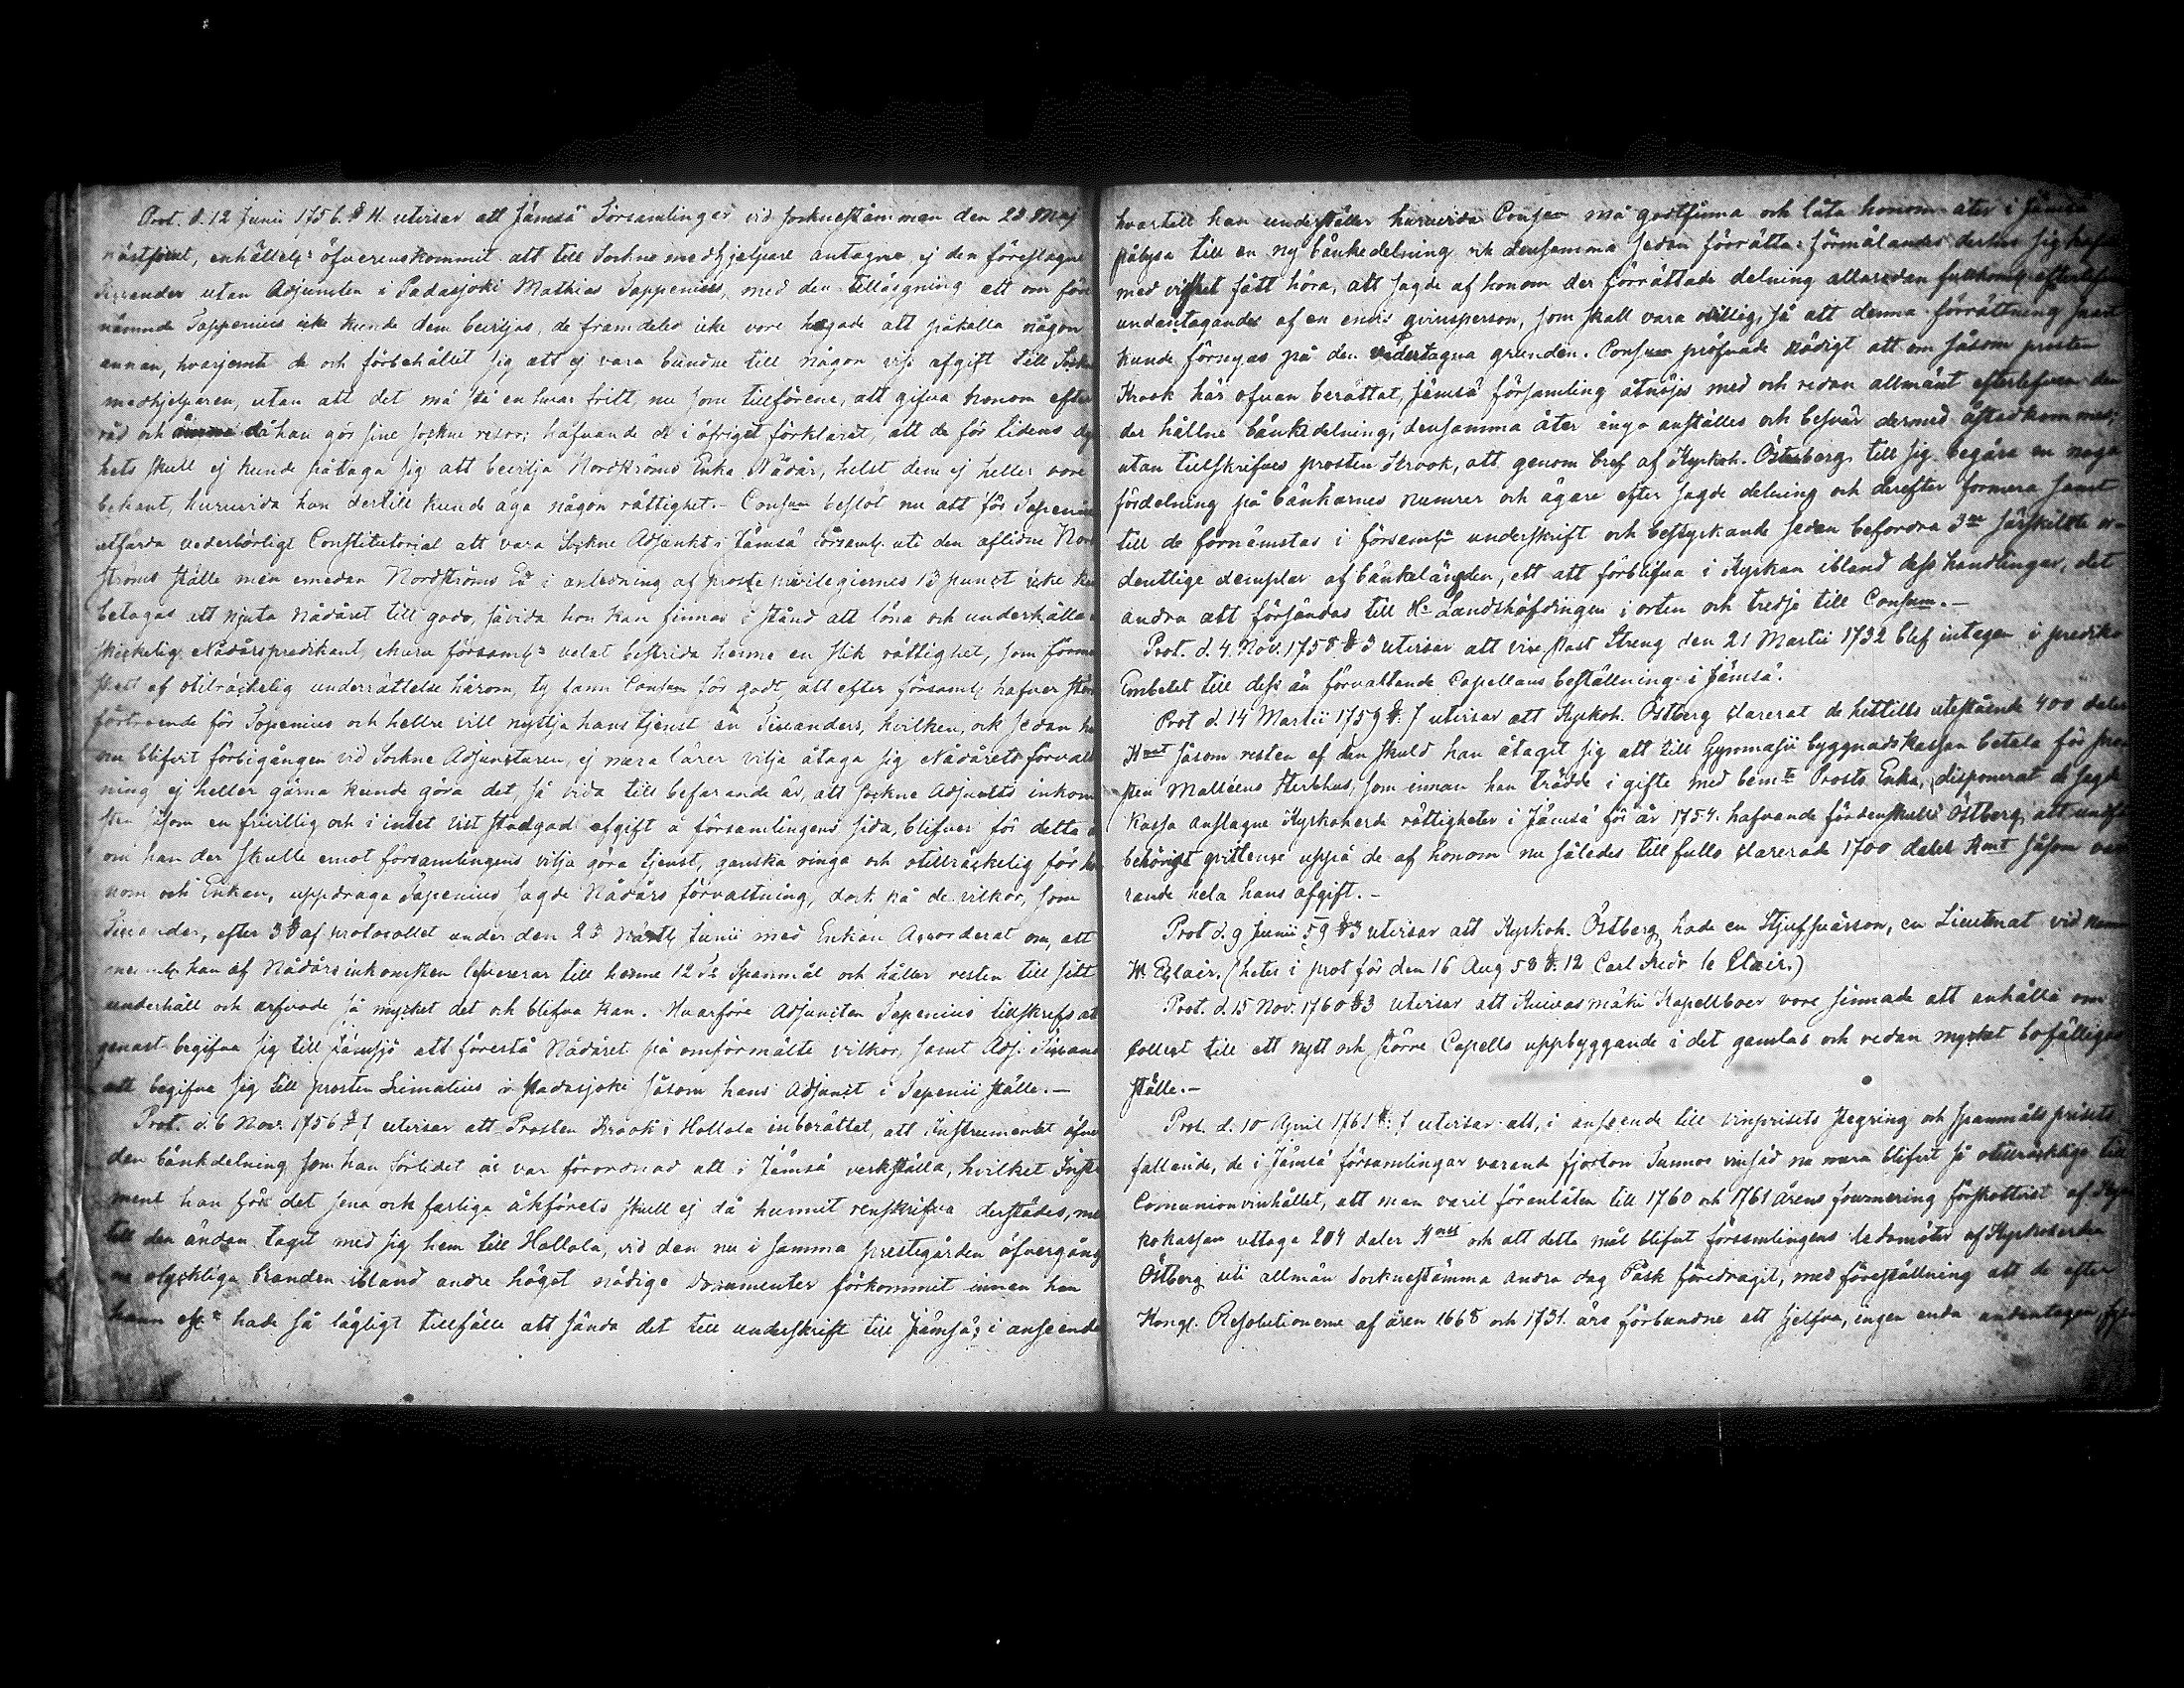 Prot. d. 12 Junii 1756. § 11. utvisar att Jämsä Församlingar vid sockne stämman den 23 Maj
nästförut, enhällel: öfverenskommit att till Sockne medhjelpare antagna ej den föreslagne
utan Adjuncten i Padasjoki Mathias Tappenius, med den tilläggning att om före
nämnde Tappenius icke kunde dem beviljas, de framdeles icke vore hugade att påkalla någon
annan, hvarjemte de och förbehållit sig att ej vara bundne till någon viss afgift till Sockne
medhjelparen, utan att det må stå en hvar fritt, nu som tillförene, att gifva honom efter
råd och då han gör sine sockne resor; hafvande de i öfrigt förklarat, att de för tidens dyr
hets skull ej kunde påtaga sig att bevilja Nordströms Enka Nådår, helst dem ej heller vore
bekant, huruvida hon dertill kunde äga någon rättighet. - Consum beslöt nu att för Sapenius
utfärda vederbörligt Constitutorial att vara Sockne Adjunkt i Jämsä Församl. uti den aflidne Nord
ströms ställe men emedan Nordströms Ea i anledning af preste privilegiernes 13 punct icke kan
betagas att njuta nådåret till godo, såvida hon kan finnas i stånd att löna och underhålla
skickelig Nådårspredikant, ehuru församl:n velat bestrida henne en slik rättighet, som förme
skett af otiläckelig underrättelse härom, ty fann Consum för godt, att efter församl. hafver större
förtroende för Sapenius och hellre vill nyttja hans tjenst än Sinanders, hvilken, ock sedan han
nu blifvit förbigången vid Sockne Adjuncturen, ej mera lärer vilja åtaga sig Nådårets förvalt
ning ej heller gärna kunde göra det, så vida till befarande är, att sockne Adjuncts inkom
sten såsom en frivillig och i intet vist stadgad afgift å församlingens sida, blifver för detta
om han der skulle emot församlingens vilja göra tjenst, ganska ringa och otillräckelig för ho
nom och Enkan, uppdraga Sapenius sagde Nådårs förvaltning, dock på de vilkor, som
Sinander, efter 3 § af protocollet under den 23 Junii med Enkan Accorderat om, att
han af Nådårsinkomsten lefvererar till henne 12 T:r Spanmål och håller resten till sitt
underhåll och arfvode så mycket det och blifva kan. Hvarföre Adjuncten Sapenius tillskrefs at
genast begifva sig till Jämsjö att förestå Nådåret på omförmälte vilkor, samt Adj. Sinand
att begifva sig till prosten Limatius i Padasjoki såsom hans Adjunct i Sapenii ställe. -
Prot. d. 6 Nov. 1756 § 7 utvisar att Prosten Krook i Hollola inberättet, att Instrumentet öfver
den bänkdelning som han förlidet år var förordnad att i Jämsä verkställa, hvilket Instru
ment han för det sena och farliga åkförets skull ej då hunnit renskrifva derstädes, men
till den ändan tagit med sig hem till Hollola, vid den nu i samma prestegården öfvergång
ne olyckliga branden ibland andre höget nödige documenter förkommit innan han
hade så lägligt tillfälle att sända det till underskrift till Jämsä; i anseende
hvartill han underställer huruvida Consum må godtfinna och låta honom åter i Jämsä
pålysa till en ny bänkedelning och densamma sedan förrätta: förmälandes derhos sig haf
med visshet fått höra, att sagde af honom der förrättade delning allaredan
undantagandes af en enris qvinsperson, som skall vara ovillig, så att denna förrättning snart
kunde förnyas på den vedertagna grunden. Consum pröfvade nödigt att om såsom prosten
Krook här ofvan berättat, Jämsä församling åtnöjes med och redan allmänt efterlefver den
der hållne bänkedelning, densamma åter ånyo anställes och besvär dermed åstadkommes;
utan tillskrifves prosten Krook, att genom bref af Kyrkoh. Östberg till sig begära en noga
fördelning på bänkarnes numrer och ägare efter sagde delning och derefter formera samt
till de förnämstas i församl:n underskrift och bestyrkande sedan befordra 3:ne särskildte or-
dentlige exemplar af bänkelängden, ett att förblifva i Kyrkan ibland dess handlingar, det
andra att försändas till H:r Landshöfdingen i orten och tredje till Consum. -
Prot. d. 4. Nov. 1758 § 3 utvisar att vice Past Streng den 21 Martii 1732 blef intagen i prediko
Embetet till dess än förvaltande Capellans beställning i Jämsä.
Prot d. 14 Martii 1759 §. 7 utvisar att Kyrkoh. Östberg clarerat de hittills utestående 400 daler
K:mt såsom resten af den skuld han åtagit sig att till Gymnasii byggnadskassan betala för pro
sten Malléens sterbhus, som innan han trädde i gifte med bem:te Prosts Enka, disponerat de sagde
Kassa anslagne Kyrkoherde rättigheter i Jämsä för år 1754. hafvande fördenskull Östberg att undfå
behörigt qvittence uppå de af honom nu således till fullo clarerade 1700 daler Kmt såsom va
rande hela hans afgift. -
Prot d. 9 Junii 59 § 3 utvisar att Kyrkoh. Östberg hade en Stjufsvärson, en Lieutnat vid namn
W. Eclair. (heter i prot för den 16 Aug 58 §: 12 Carl Fredr le Clair.)
Prot. d. 15 Nov. 1760 § 3 utvisar att Kuivasmäki Kapellboer vore sinnade att anhålla om
Collect till ett nytt och större Capells uppbyggande i det gamlas och redan mycket bofälliges
ställe. -
Prot. d. 10 April 1761 §: 7 utvisar att, i anseende till vinprisets stegring och spanmåls prisets
fallande, de i Jämsä församlingar varande fjorton Tunnor vinsäd nu mera blifvit så otillräcklige till
Communionvinhållet, att man varit förenlåten till 1760 och 1761 årens fournering förskottvis af Kyr
kokassan uttaga 204 daler K:mt och att detta mål blifvit församlingens ledamöter af Kyrkoherden
Östberg uti allmän Socknestämma andra dag Påsk föredragit, med föreställning att de efter
Kongl. Resolutionerne af åren 1668 och 1731. äro förbundne att sjelfva, ingen enda undantagen,